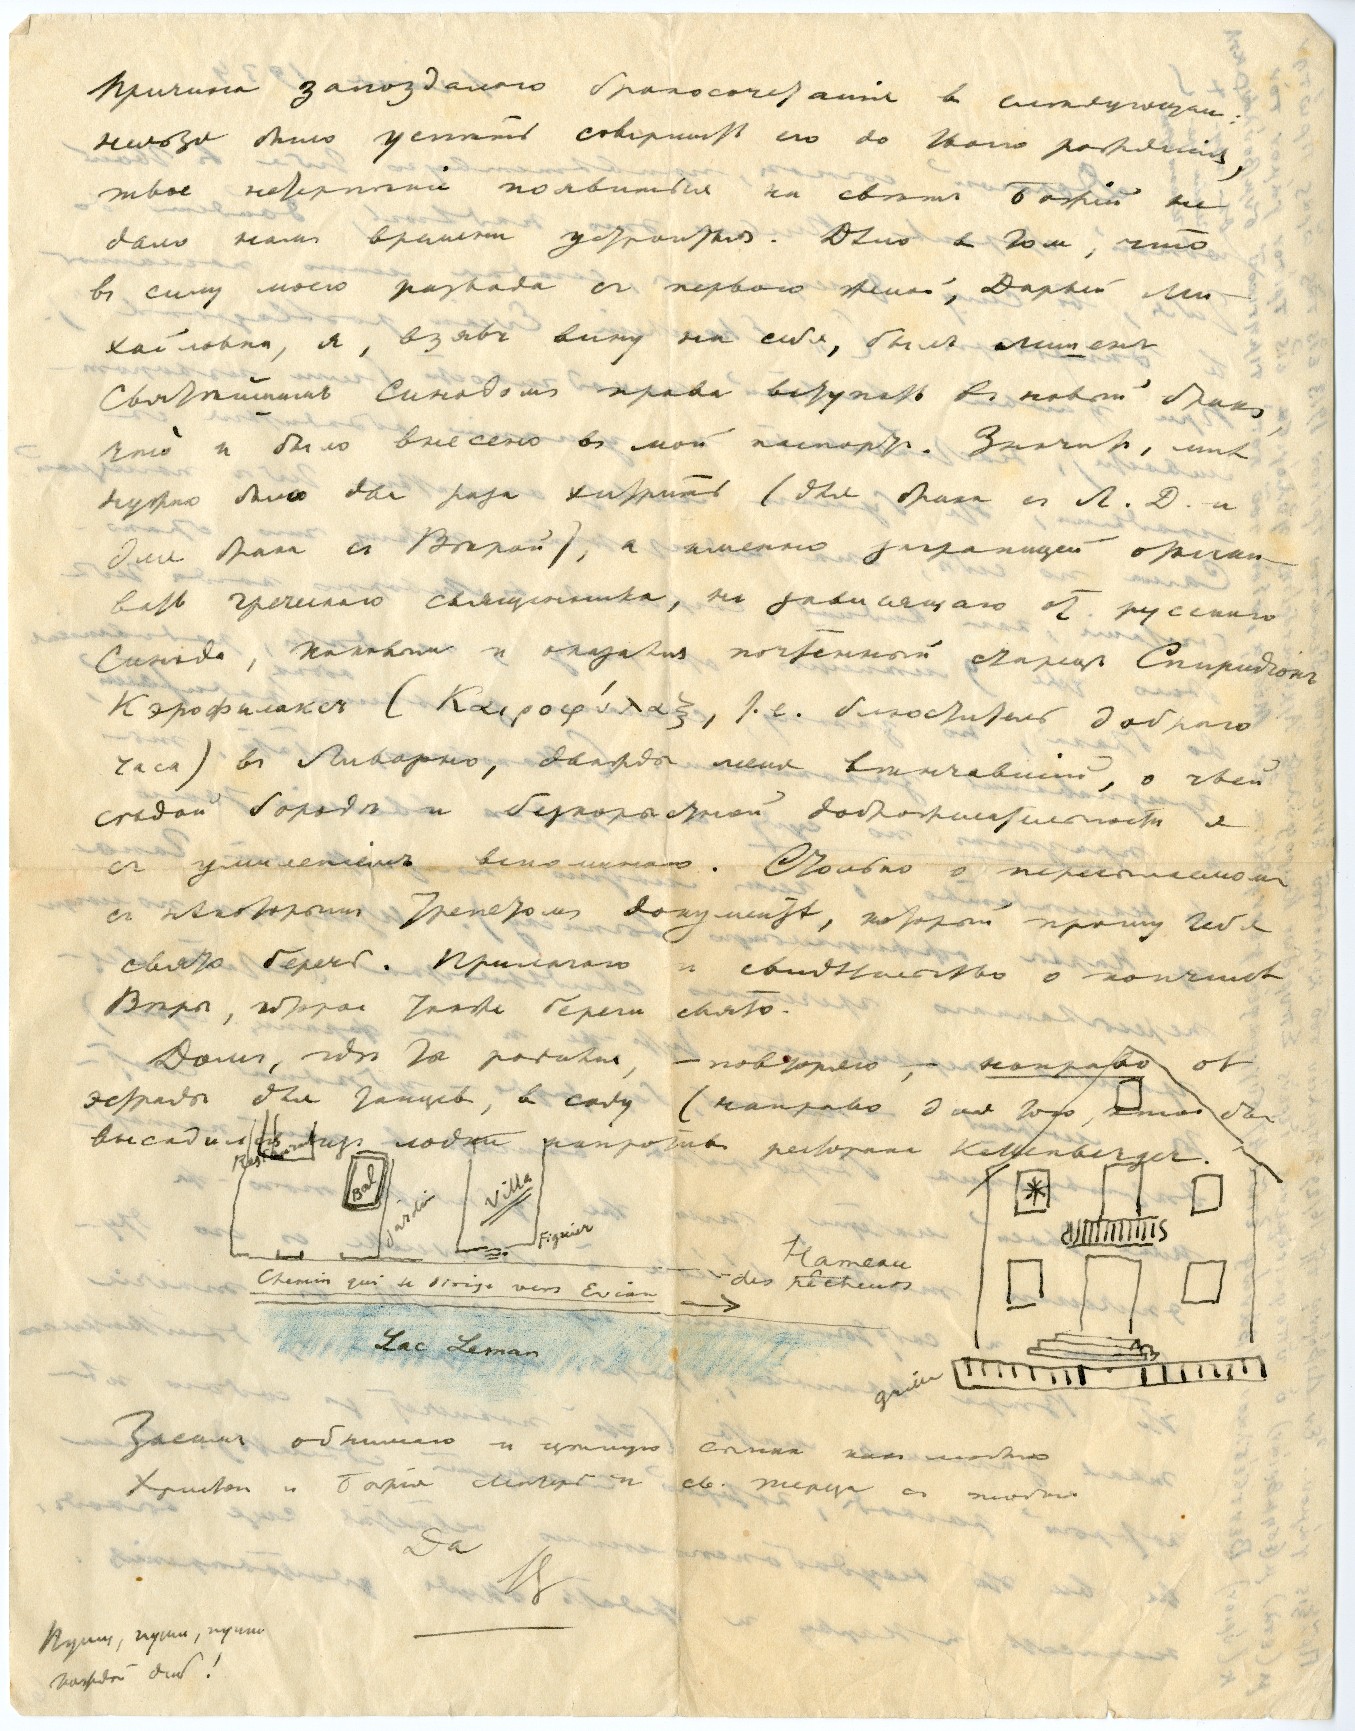 Причина запоздалаго бракосочетанія в слѣдующем:
нельзя было успѣть совершить его до твоего рожденія,
твое нетерпѣніе появиться на свѣтъ Божій не
дало намъ времени устроиться. Дѣло в том, что
въ силу моего развода съ первою женой, Дарьей Ми-
хайловна, я, взявъ вину на себя, былъ лишенъ
Святѣйшимъ Синодомъ права вступать въ новый бракъ,
что и было внесено въ мой паспортъ. Значитъ, мнѣ
нужно было два раза хитрить (для брака съ Л. Д. и
для брака съ Вѣрой), а именно заграницей отыски-
вать греческаго священника, не зависящаго от русскаго
Синода, каковым и оказался почтенный старецъ Спиридіонъ
Кэрофилаксъ (Καιροφύλαξ, т.е. блюститель добраго
часа) въ Ливорно, дважды меня вѣнчавшій, о чьей
сѣдой бородѣ и безкорыстной доброжелательности я
съ умиленіемъ вспоминаю. Столько о пересылаемом
съ нѣкоторым трепетомъ документѣ, который прошу тебя
свято беречь. Прилагаю и свидѣтельство о кончинѣ
Вѣры, которое также береги свято.
Домъ, гдѣ ты родился, – повторяю, – направо от
эстрады для танцев, в саду (направо для того, кто бы
высадился изъ лодки напротив ресторана Kellenberger.
Restaurant
Bal
Jardin
Villa
Figuier
Chemin qui se dirige vers Evian
Hameau
des Pêcheurs
Lac Leman
grille
Засимъ обнимаю и цѣлую
Христа и Божія Матерь и св.
Да
В
Пиши, пиши, пиши
каждый день!